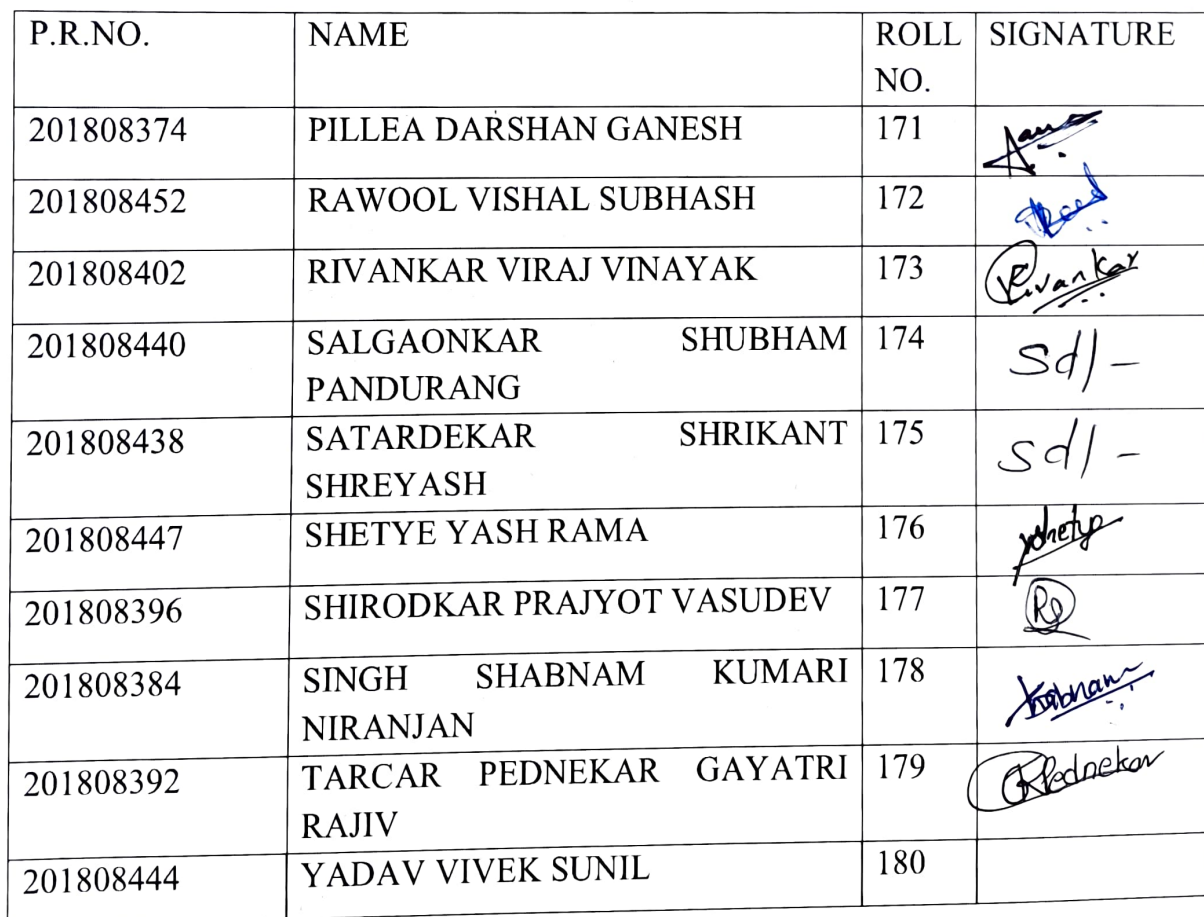 P.R.NO. NAME ROLL SIGNATURE
NO.
201808374 PILLEA DARSHAN GANESH 171
201808452 RAWOOL VISHAL SUBHASH 172
201808402 RIVANKAR VIRAJ VINAYAK 173 Rivankar
201808440 SALGAONKAR SHUBHAM 174 Sd/-
PANDURANG
201808438 SATARDEKAR SHRIKANT 175 Sd/-
SHREYASH
201808447 SHETYE YASH RAMA 176
201808396 SHIRODKAR PRAJYOT VASUDEV 177
201808384 SINGH SHABNAM KUMARI 178
NIRANJAN
201808392 TARCAR PEDNEKAR GAYATRI 179 Pednekar
RAJIV
201808444 YADAV VIVEK SUNIL 180